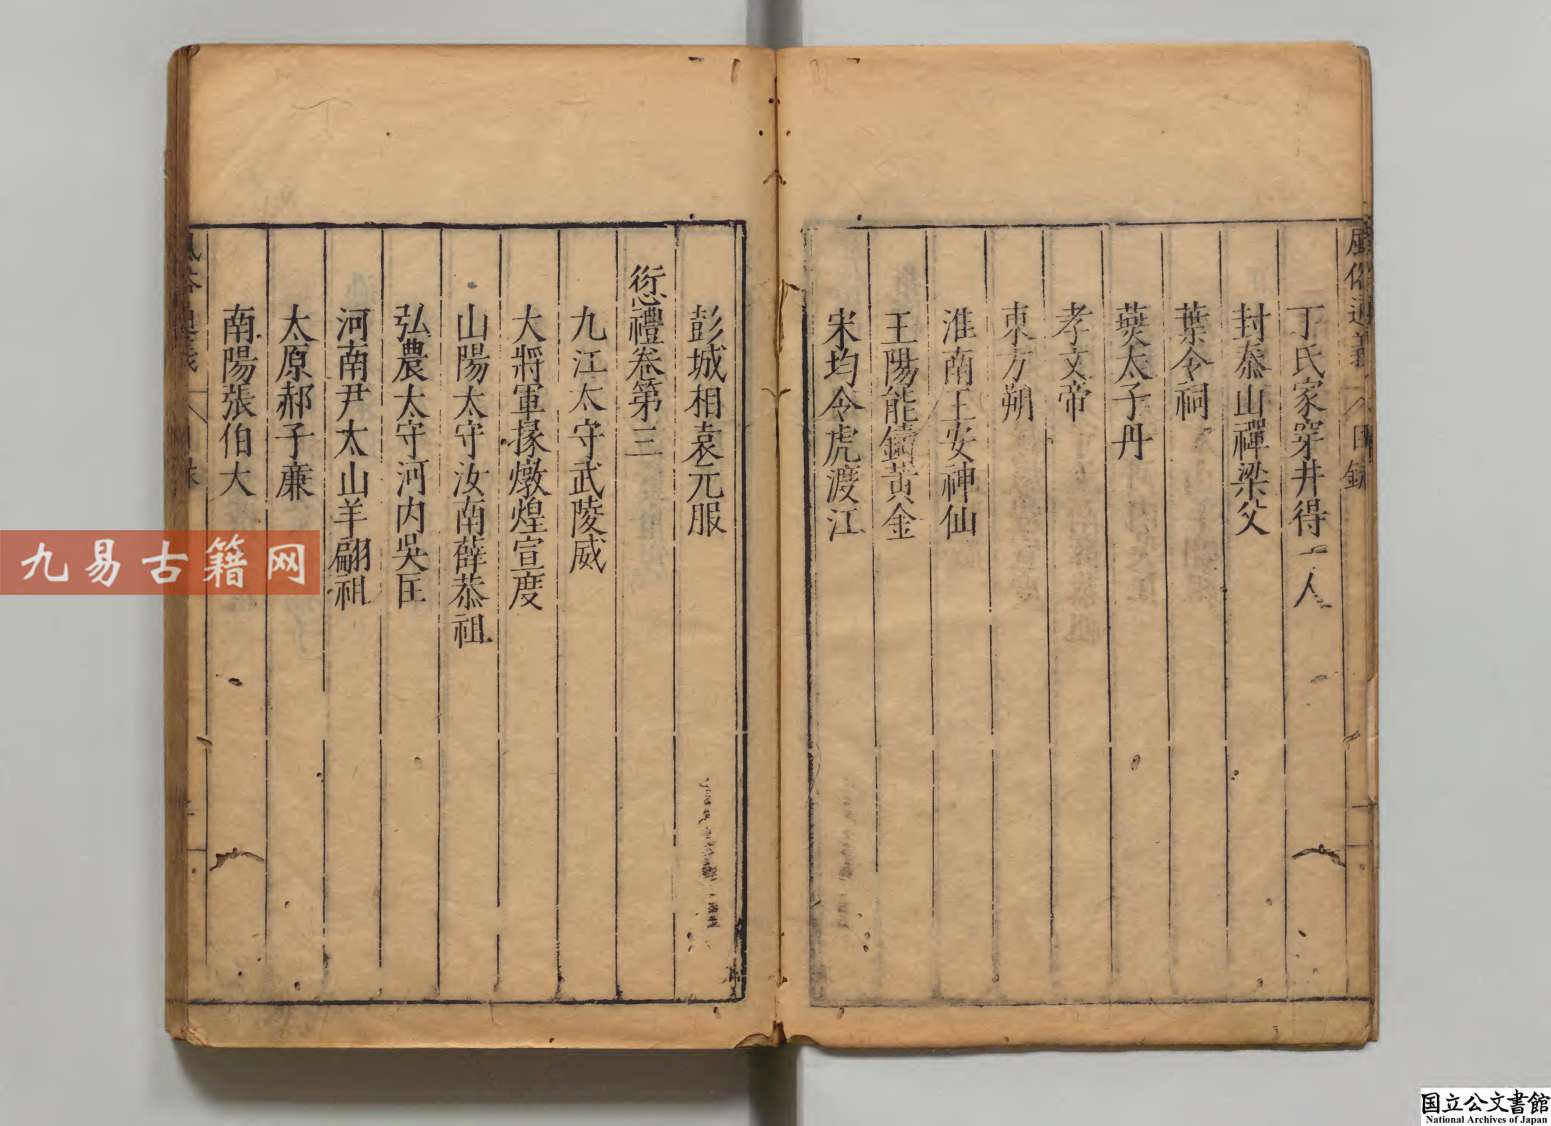 風俗通義 目錄
丁氏家穿井得一人
封泰山禪梁父
葉令祠
燕太子丹
孝文帝
東方朔
淮南王安神仙
王陽能鑄黃金
宋均令虎渡江
彭城相袁元服
愆禮卷第三
九江太守武陵威
大將軍掾燉煌宣度
山陽太守汝南薛恭祖
弘農太守河內吳匡
河南尹太山羊翩祖
太原郝子廉
南陽張伯大
九易古籍网
国立公文書館
National Archives of Japan